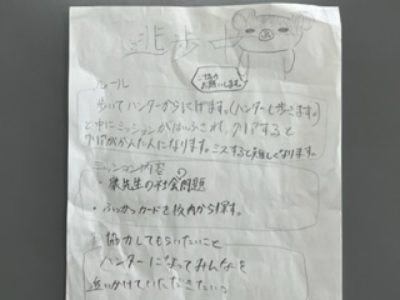 逃歩中
ご協力
お願いします。
ルール
歩いてハンターからにげます。(ハンターも歩きます。)
と中にミッションがはっぷされ、クリアすると
クリアがかんたんになります。ミスすると難しくなります。
ミッション内容
・泉先生の社会の問題
・ふっかつカードを校内から探す。
協力してもらいたいこと
ハンターになってみんなを
追いかけていただきたい。